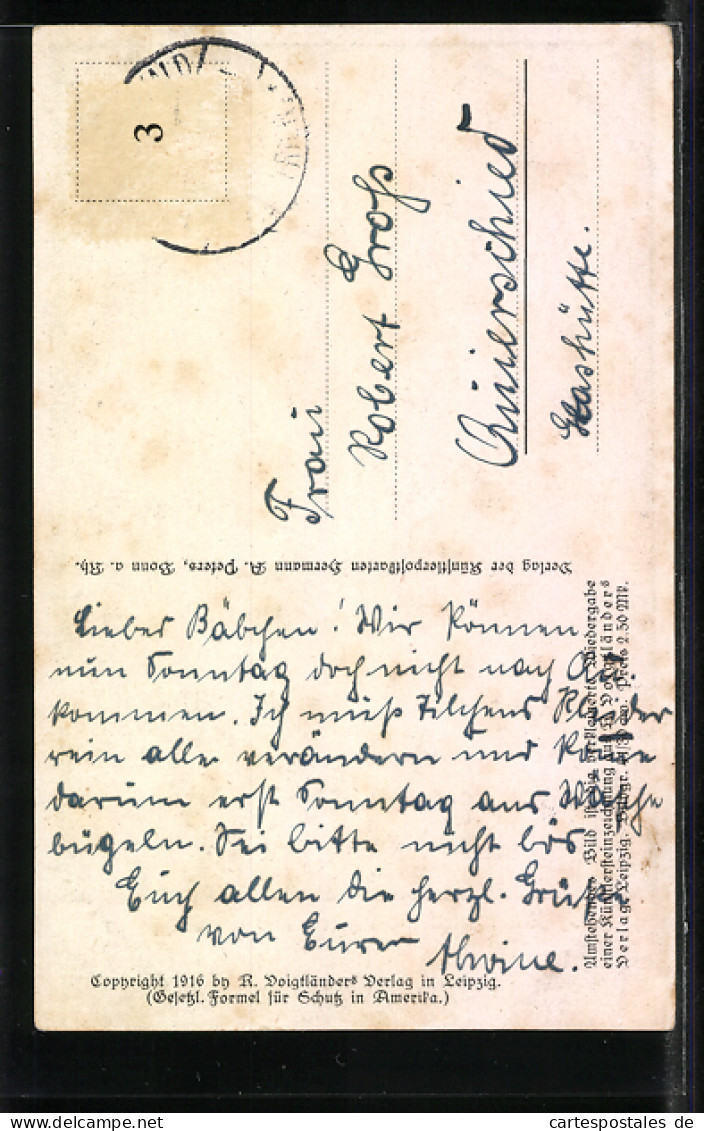 3
Frau
Robert Groß
Quierschied
Glashütte.
Verlag der Künstlerpostkarten Hermann A. Peters, Bonn a. Rh.
Liebes Bäbchen! Wir können
nun Sonntag doch nicht nach
kommen. Ich muß Tilchens Kleider
rein alle verändern und
darum erst Sonntag ans
bügeln. Sei bitte nicht bös
Euch allen die herzl. Grüße
von Eurer Alwine.
Umstehendes Bild ist die verkleinerte Wiedergabe
einer Künstlersteinzeichnung aus R. Voigtländers
Verlag, Leipzig. Preis 2.50 Mk.
Copyright 1916 by R. Voigtländers Verlag in Leipzig.
(Gesetzl. Formel für Schutz in Amerika.)
cartespostales de